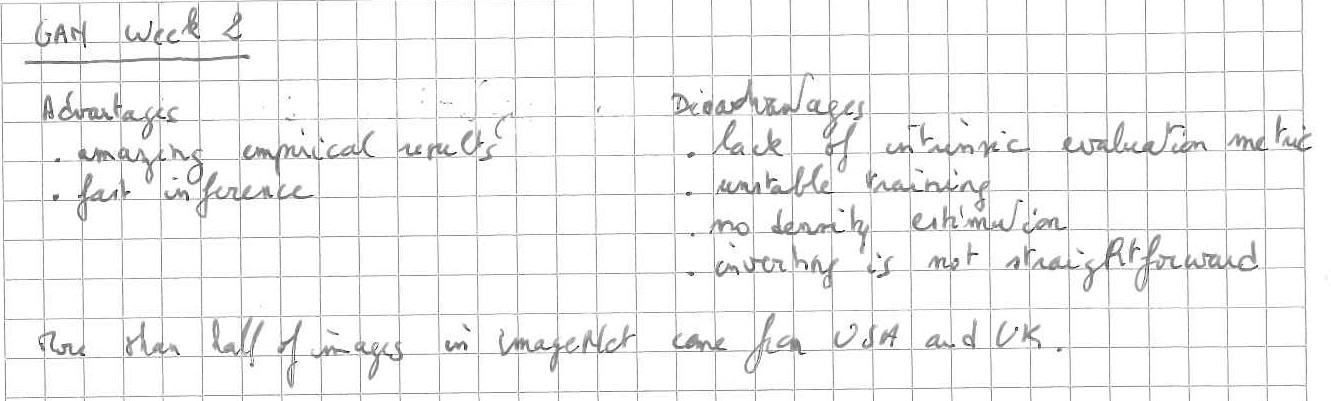 GAN Week 2
Advantages
. amazing empirical results
. fast inference
Disadvantages
. lack of intrinsic evaluation metric
. unstable training
. no density estimation
. inverting is not straightforward
More than half of images in imageNet come from USA and UK.